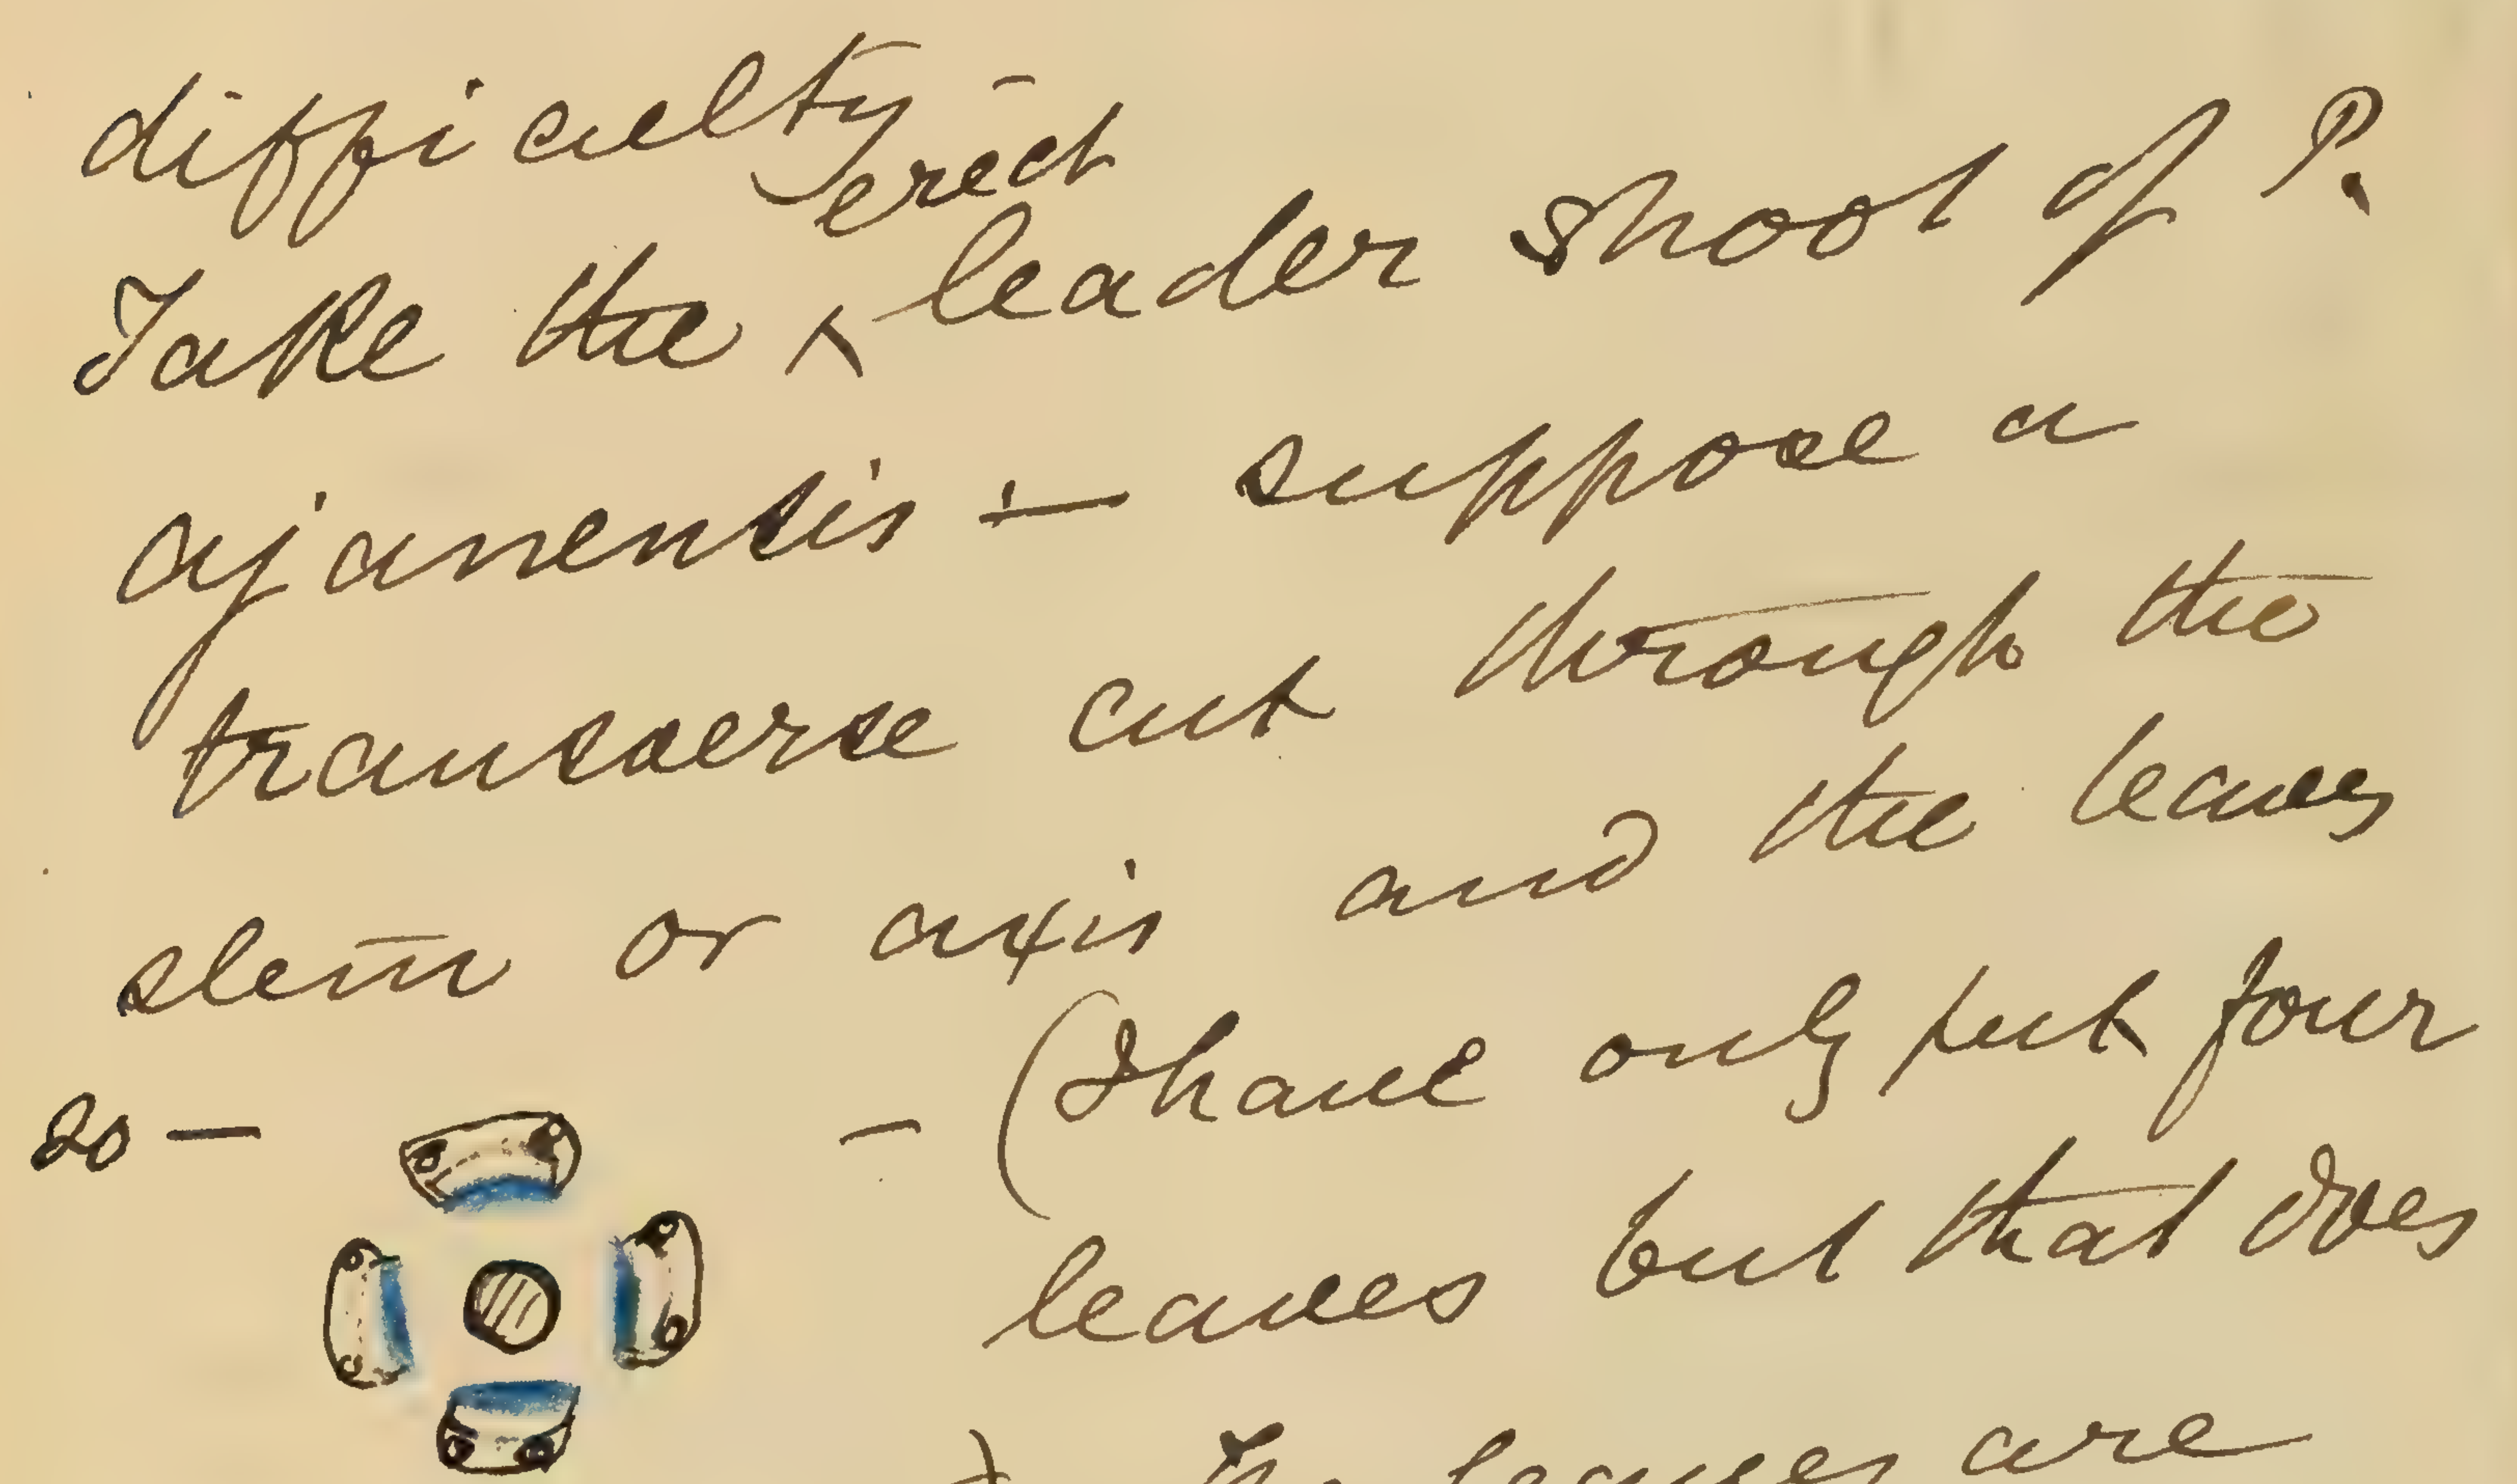 difficulty
erect
Take the ^ leader shoot of P.
ajanensis — suppose a
transverse cut through the
stem or axis and the leaves
so — — (I have only put four
leaves but that does
The leaves are